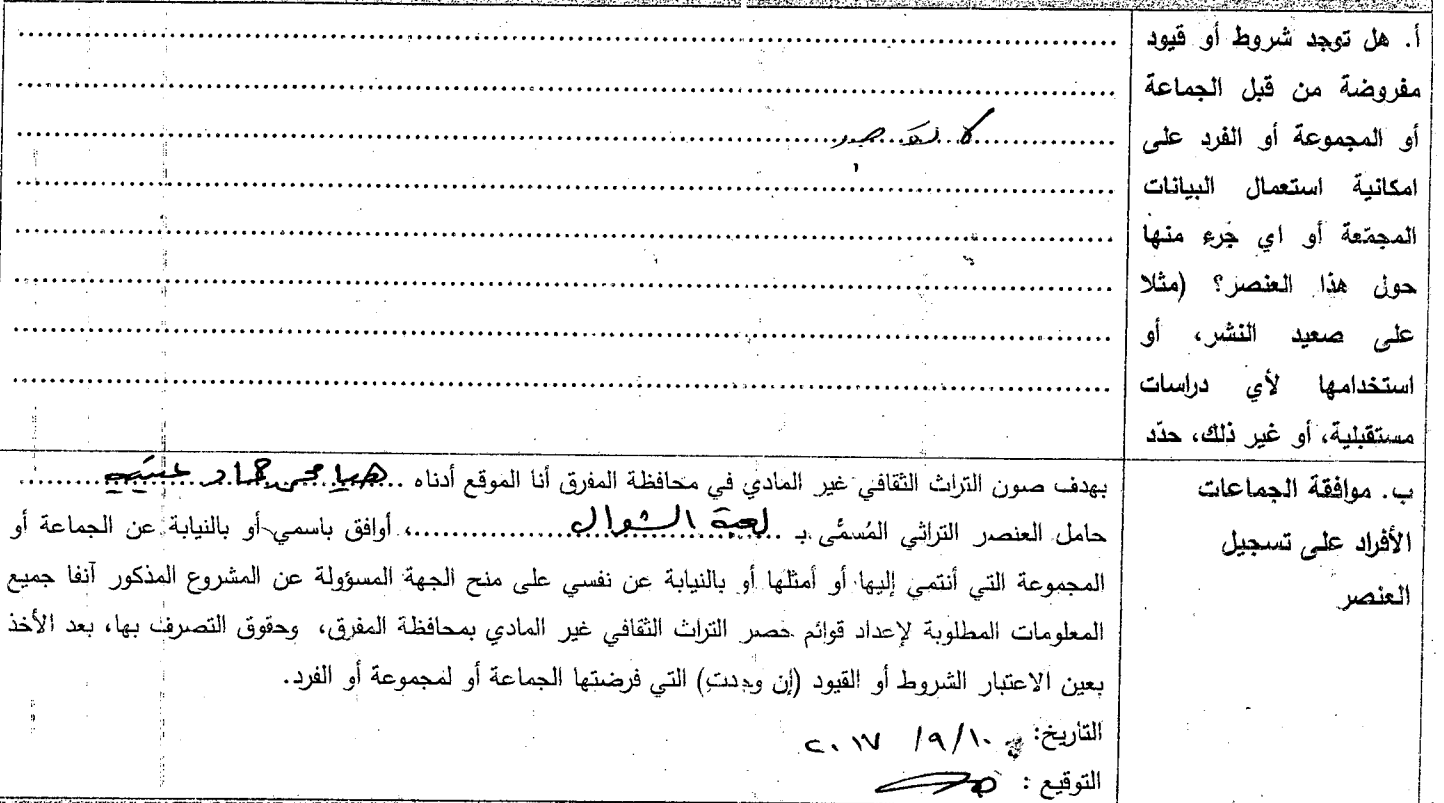 أ. هل توجد شروط أو قيود
مفروضة من قبل الجماعة
أو المجموعة أو الفرد على
امكانية استعمال البيانات
المجمّعة أو اي جزء منها
حول هذا العنصر؟ (مثلا
على صعيد النشر، أو
استخدامها لأي دراسات
مستقبلية، أو غير ذلك، حدّد
لا يوجد
ب. موافقة الجماعات
الأفراد على تسجيل
العنصر
بهدف صون التراث الثقافي غير المادي في محافظة المفرق أنا الموقع أدناه
حامل العنصر التراثي المُسمَّى بـ لعبة الشوال، أوافق باسمي أو بالنيابة عن الجماعة أو
المجموعة التي أنتمي إليها أو أمثلها أو بالنيابة عن نفسي على منح الجهة المسؤولة عن المشروع المذكور آنفا جميع
المعلومات المطلوبة لإعداد قوائم حصر التراث الثقافي غير المادي بمحافظة المفرق، وحقوق التصرف بها، بعد الأخذ
بعين الاعتبار الشروط أو القيود (إن وجدت) التي فرضتها الجماعة أو لمجموعة أو الفرد.
التاريخ: ١٠/٩/ ٢٠١٧
التوقيع :